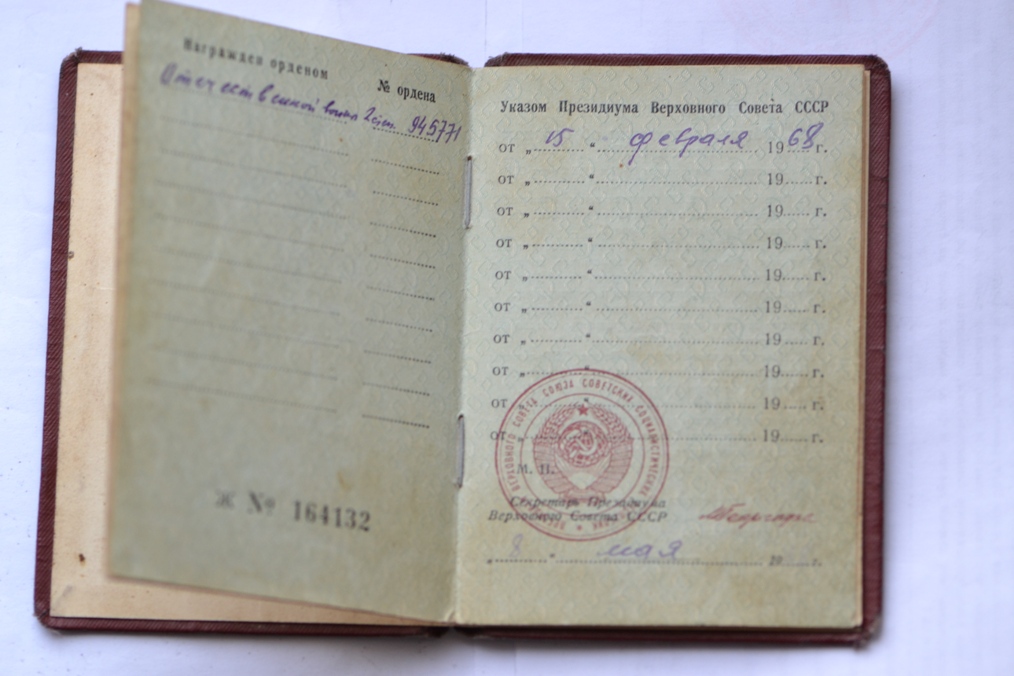 Награжден орденом
№ ордена
Отечественной войны 2 степ. 945771
Ж № 164132
Указом Президиума Верховного Совета СССР
от „ 15 “ февраля 1968 г.
от „ “ 19 г.
от „ “ 19 г.
от „ “ 19 г.
от „ “ 19 г.
от „ “ 19 г.
от „ “ 19 г.
от „ “ 19 г.
от „ “ 19 г.
от „ “ 19 г.
ВЕРХОВНОГО СОВЕТА СОЮЗА СОВЕТСКИХ СОЦИАЛИСТИЧЕСКИХ
М. П.
Секретарь Президиума
Верховного Совета СССР
„ 8 “ мая г.